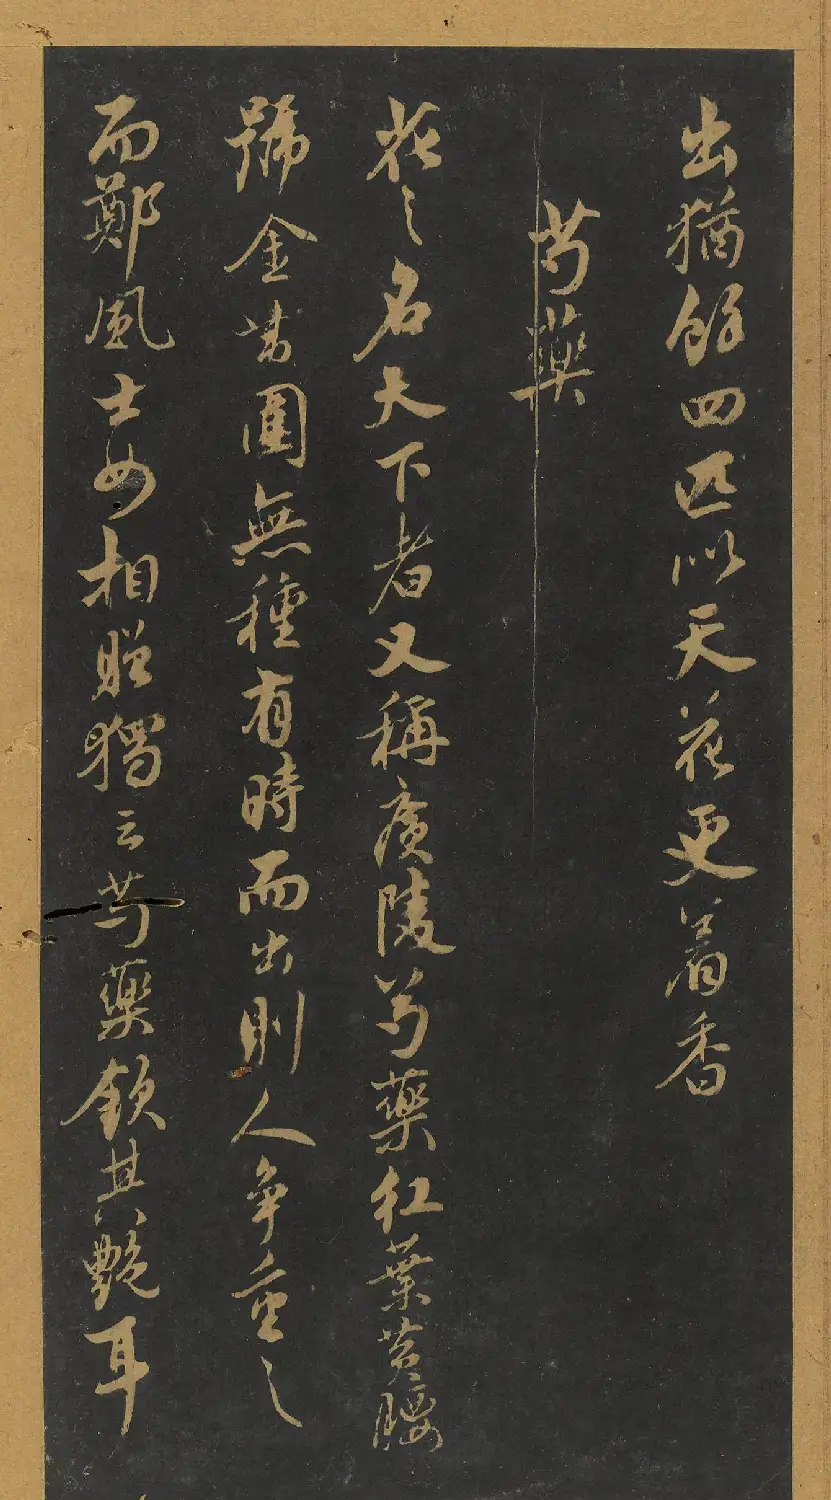 出猶餘四匹以天花更着香
芍藥
花之名天下者又稱廣陵芍藥紅葉黃腰
號金帶圍無種有時而出則人爭重之
而鄭風士女相贈獨云芍藥領其艷耳